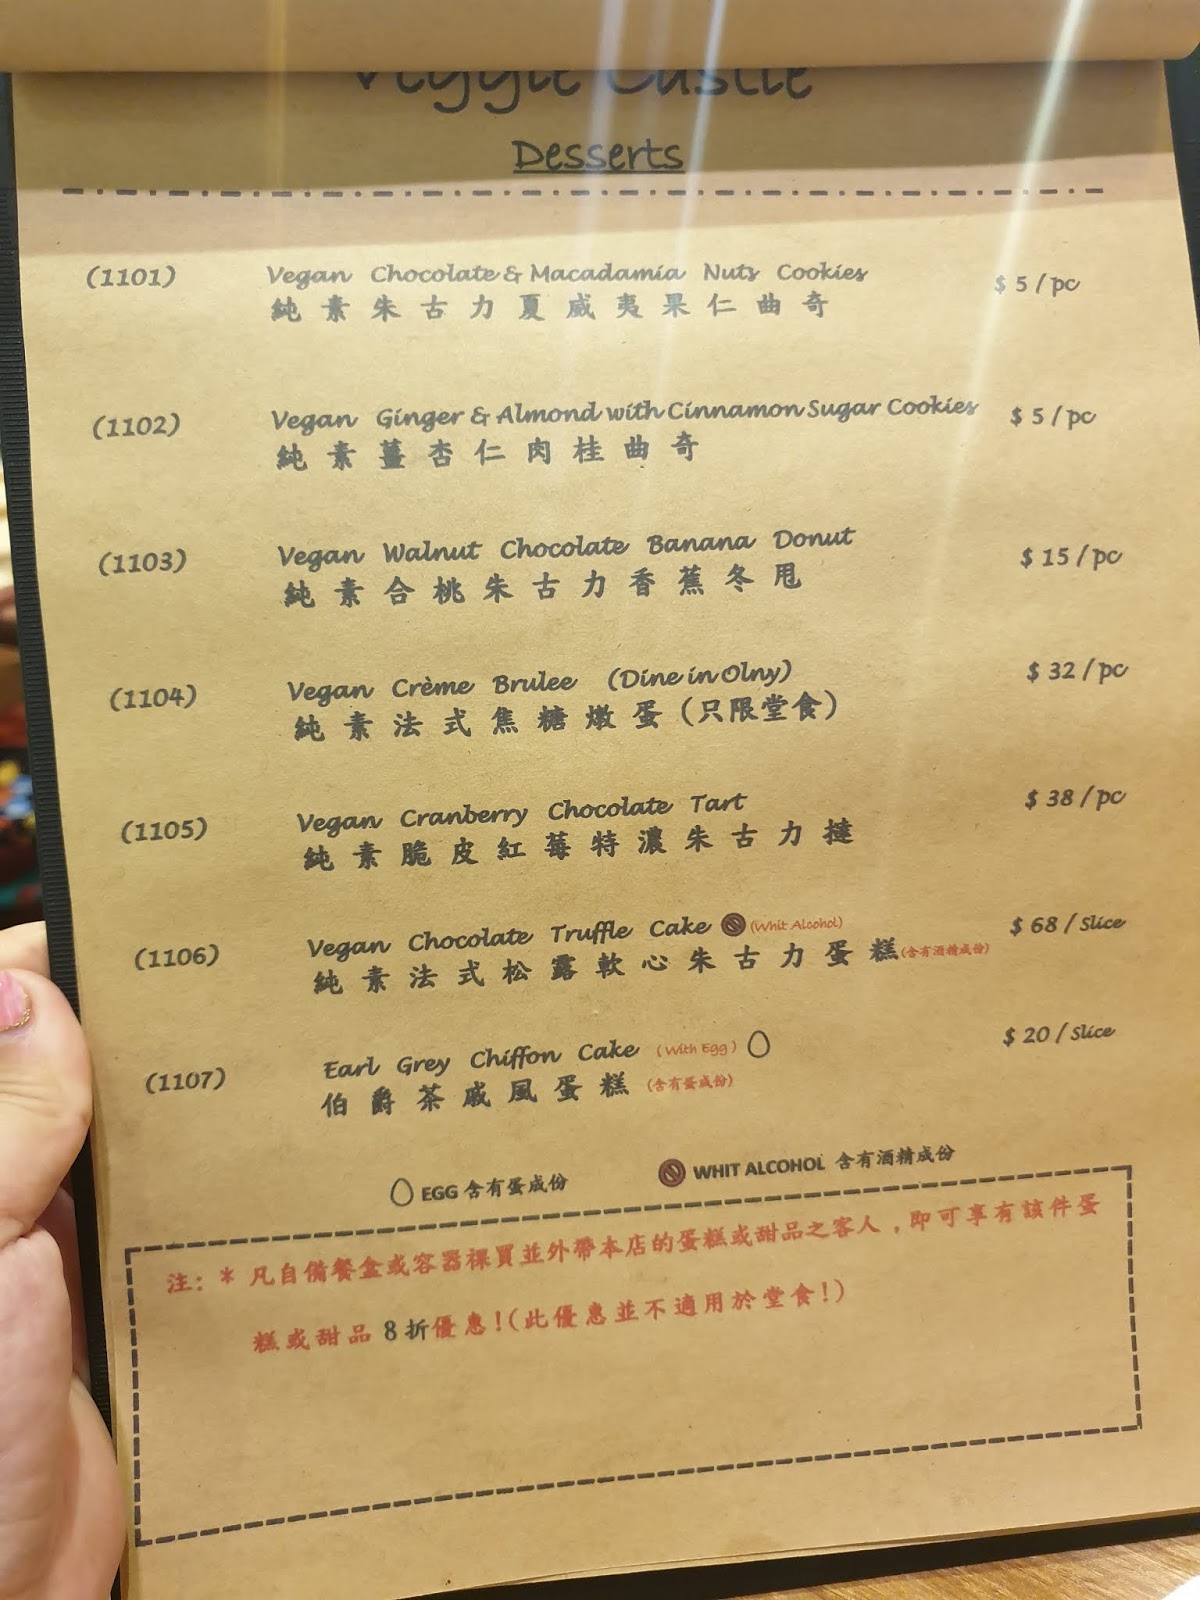 Veggie Castle
Desserts
(1101) Vegan Chocolate & Macadamia Nuts Cookies $ 5 / pc
純素朱古力夏威夷果仁曲奇
(1102) Vegan Ginger & Almond with Cinnamon Sugar Cookies $ 5 / pc
純素薑杏仁肉桂曲奇
(1103) Vegan Walnut Chocolate Banana Donut $ 15 / pc
純素合桃朱古力香蕉冬甩
(1104) Vegan Crème Brulee (Dine in Olny) $ 32 / pc
純素法式焦糖燉蛋(只限堂食)
(1105) Vegan Cranberry Chocolate Tart $ 38 / pc
純素脆皮紅莓特濃朱古力撻
(1106) Vegan Chocolate Truffle Cake (Whit Alcohol) $ 68 / Slice
純素法式松露軟心朱古力蛋糕(含有酒精成份)
(1107) Earl Grey Chiffon Cake (With Egg) $ 20 / Slice
伯爵茶戚風蛋糕 (含有蛋成份)
EGG 含有蛋成份 WHIT ALCOHOL 含有酒精成份
注: * 凡自備餐盒或容器裸買並外帶本店的蛋糕或甜品之客人,即可享有該件蛋
糕或甜品 8 折優惠!(此優惠並不適用於堂食!)